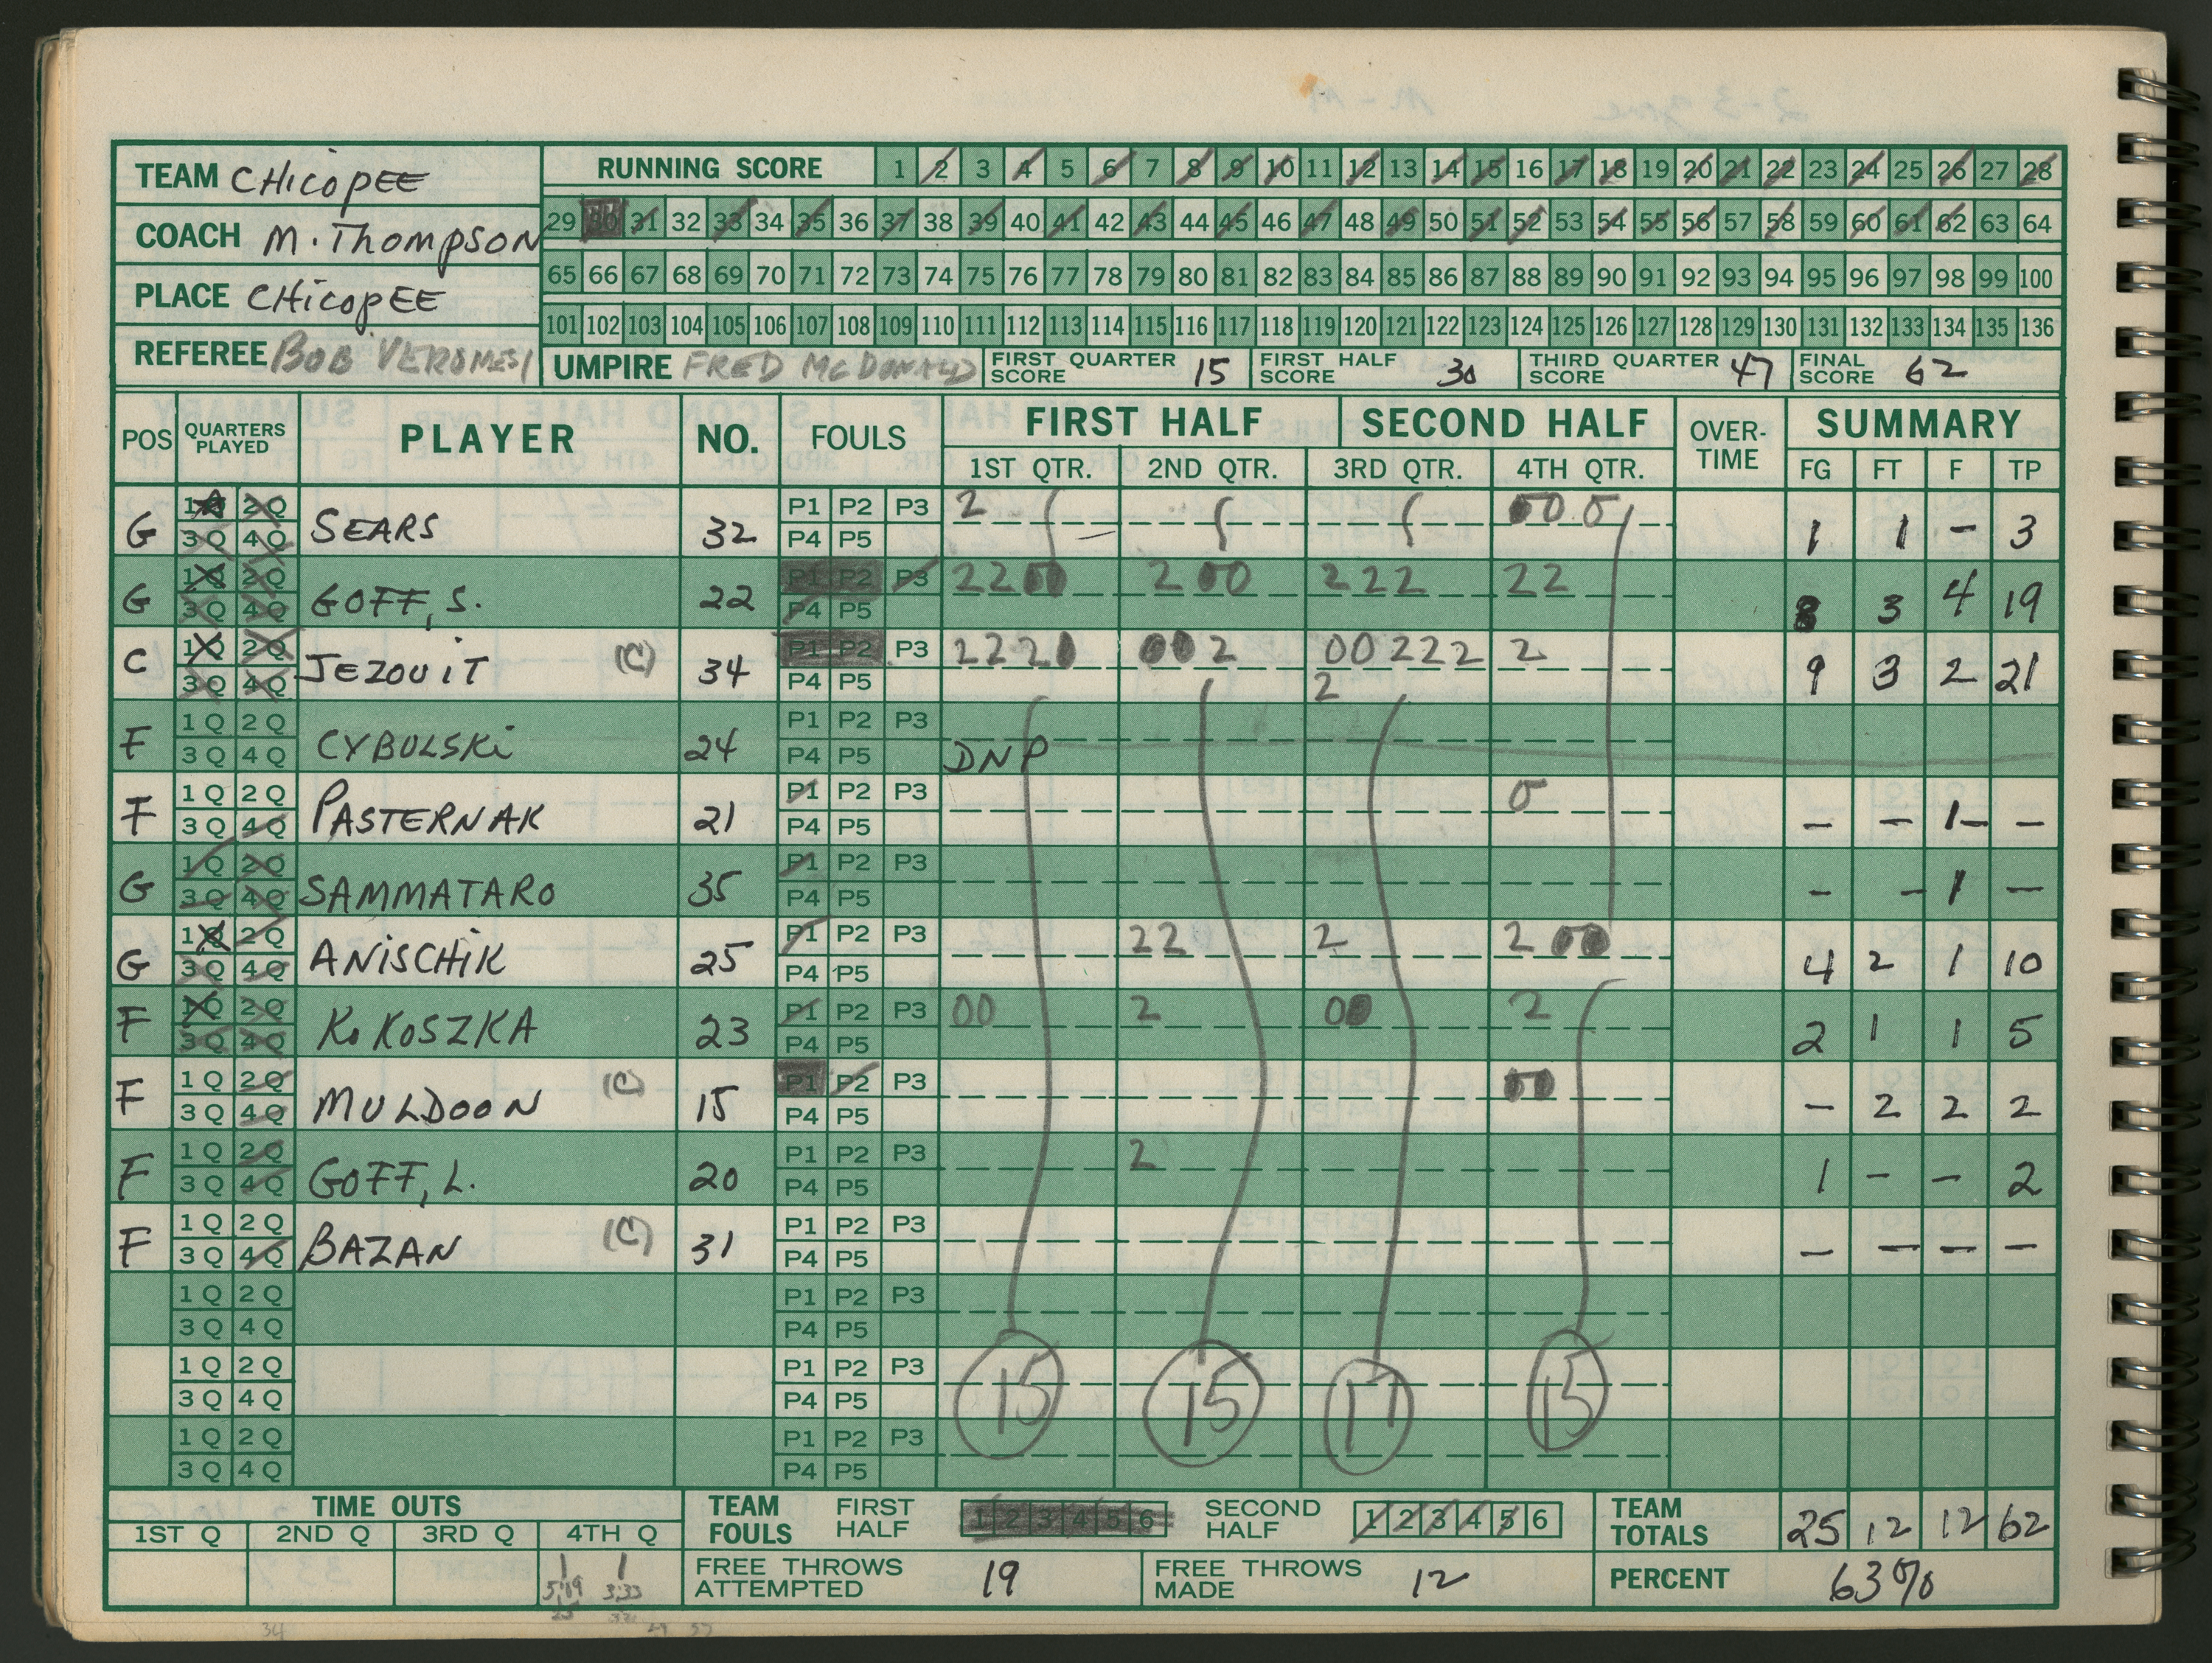 TEAM CHicopEE
COACH M. Thompson
PLACE CHicopEE
REFEREE BOB VERSMESI
RUNNING SCORE 1 2 3 4 5 6 7 8 9 10 11 12 13 14 15 16 17 18 19 20 21 22 23 24 25 26 27 28
29 30 31 32 33 34 35 36 37 38 39 40 41 42 43 44 45 46 47 48 49 50 51 52 53 54 55 56 57 58 59 60 61 62 63 64
65 66 67 68 69 70 71 72 73 74 75 76 77 78 79 80 81 82 83 84 85 86 87 88 89 90 91 92 93 94 95 96 97 98 99 100
101 102 103 104 105 106 107 108 109 110 111 112 113 114 115 116 117 118 119 120 121 122 123 124 125 126 127 128 129 130 131 132 133 134 135 136
UMPIRE FRED McDONALD FIRST QUARTER SCORE 15 FIRST HALF SCORE 30 THIRD QUARTER SCORE 47 FINAL SCORE 62
POS QUARTERS PLAYED PLAYER NO. FOULS FIRST HALF SECOND HALF OVER-TIME SUMMARY
1ST QTR. 2ND QTR. 3RD QTR. 4TH QTR. FG FT F TP
G 1Q 2Q 3Q 4Q SEARS 32 P1 P2 P3 P4 P5 2 00 0 1 1 - 3
G 1Q 2Q 3Q 4Q GOFF, S. 22 P1 P2 P3 P4 P5 2200 200 222 22 8 3 4 19
C 1Q 2Q 3Q 4Q JEZOUiT (C) 34 P1 P2 P3 P4 P5 2220 002 00222 2 2 9 3 2 21
F 1Q 2Q 3Q 4Q CYBULSKi 24 P1 P2 P3 P4 P5 DNP
F 1Q 2Q 3Q 4Q PASTERNAK 21 P1 P2 P3 P4 P5 0 - - 1 -
G 1Q 2Q 3Q 4Q SAMMATARO 35 P1 P2 P3 P4 P5 - - 1 -
G 1Q 2Q 3Q 4Q ANiSCHiK 25 P1 P2 P3 P4 P5 22 2 2 00 4 2 1 10
F 1Q 2Q 3Q 4Q KoKOSZKA 23 P1 P2 P3 P4 P5 00 2 00 2 2 1 1 5
F 1Q 2Q 3Q 4Q MULDOON (C) 15 P1 P2 P3 P4 P5 00 - 2 2 2
F 1Q 2Q 3Q 4Q GOFF, L. 20 P1 P2 P3 P4 P5 2 1 - - 2
F 1Q 2Q 3Q 4Q BAZAN (C) 31 P1 P2 P3 P4 P5 - - - -
1Q 2Q 3Q 4Q P1 P2 P3 P4 P5
1Q 2Q 3Q 4Q P1 P2 P3 P4 P5 15 15 17 15
1Q 2Q 3Q 4Q P1 P2 P3 P4 P5
TIME OUTS
1ST Q 2ND Q 3RD Q 4TH Q
1 1
5:19 3:33
25 32
TEAM FOULS FIRST HALF 1 2 3 4 5 6 SECOND HALF 1 2 3 4 5 6 TEAM TOTALS 25 12 12 62
FREE THROWS ATTEMPTED 19 FREE THROWS MADE 12 PERCENT 63%
34